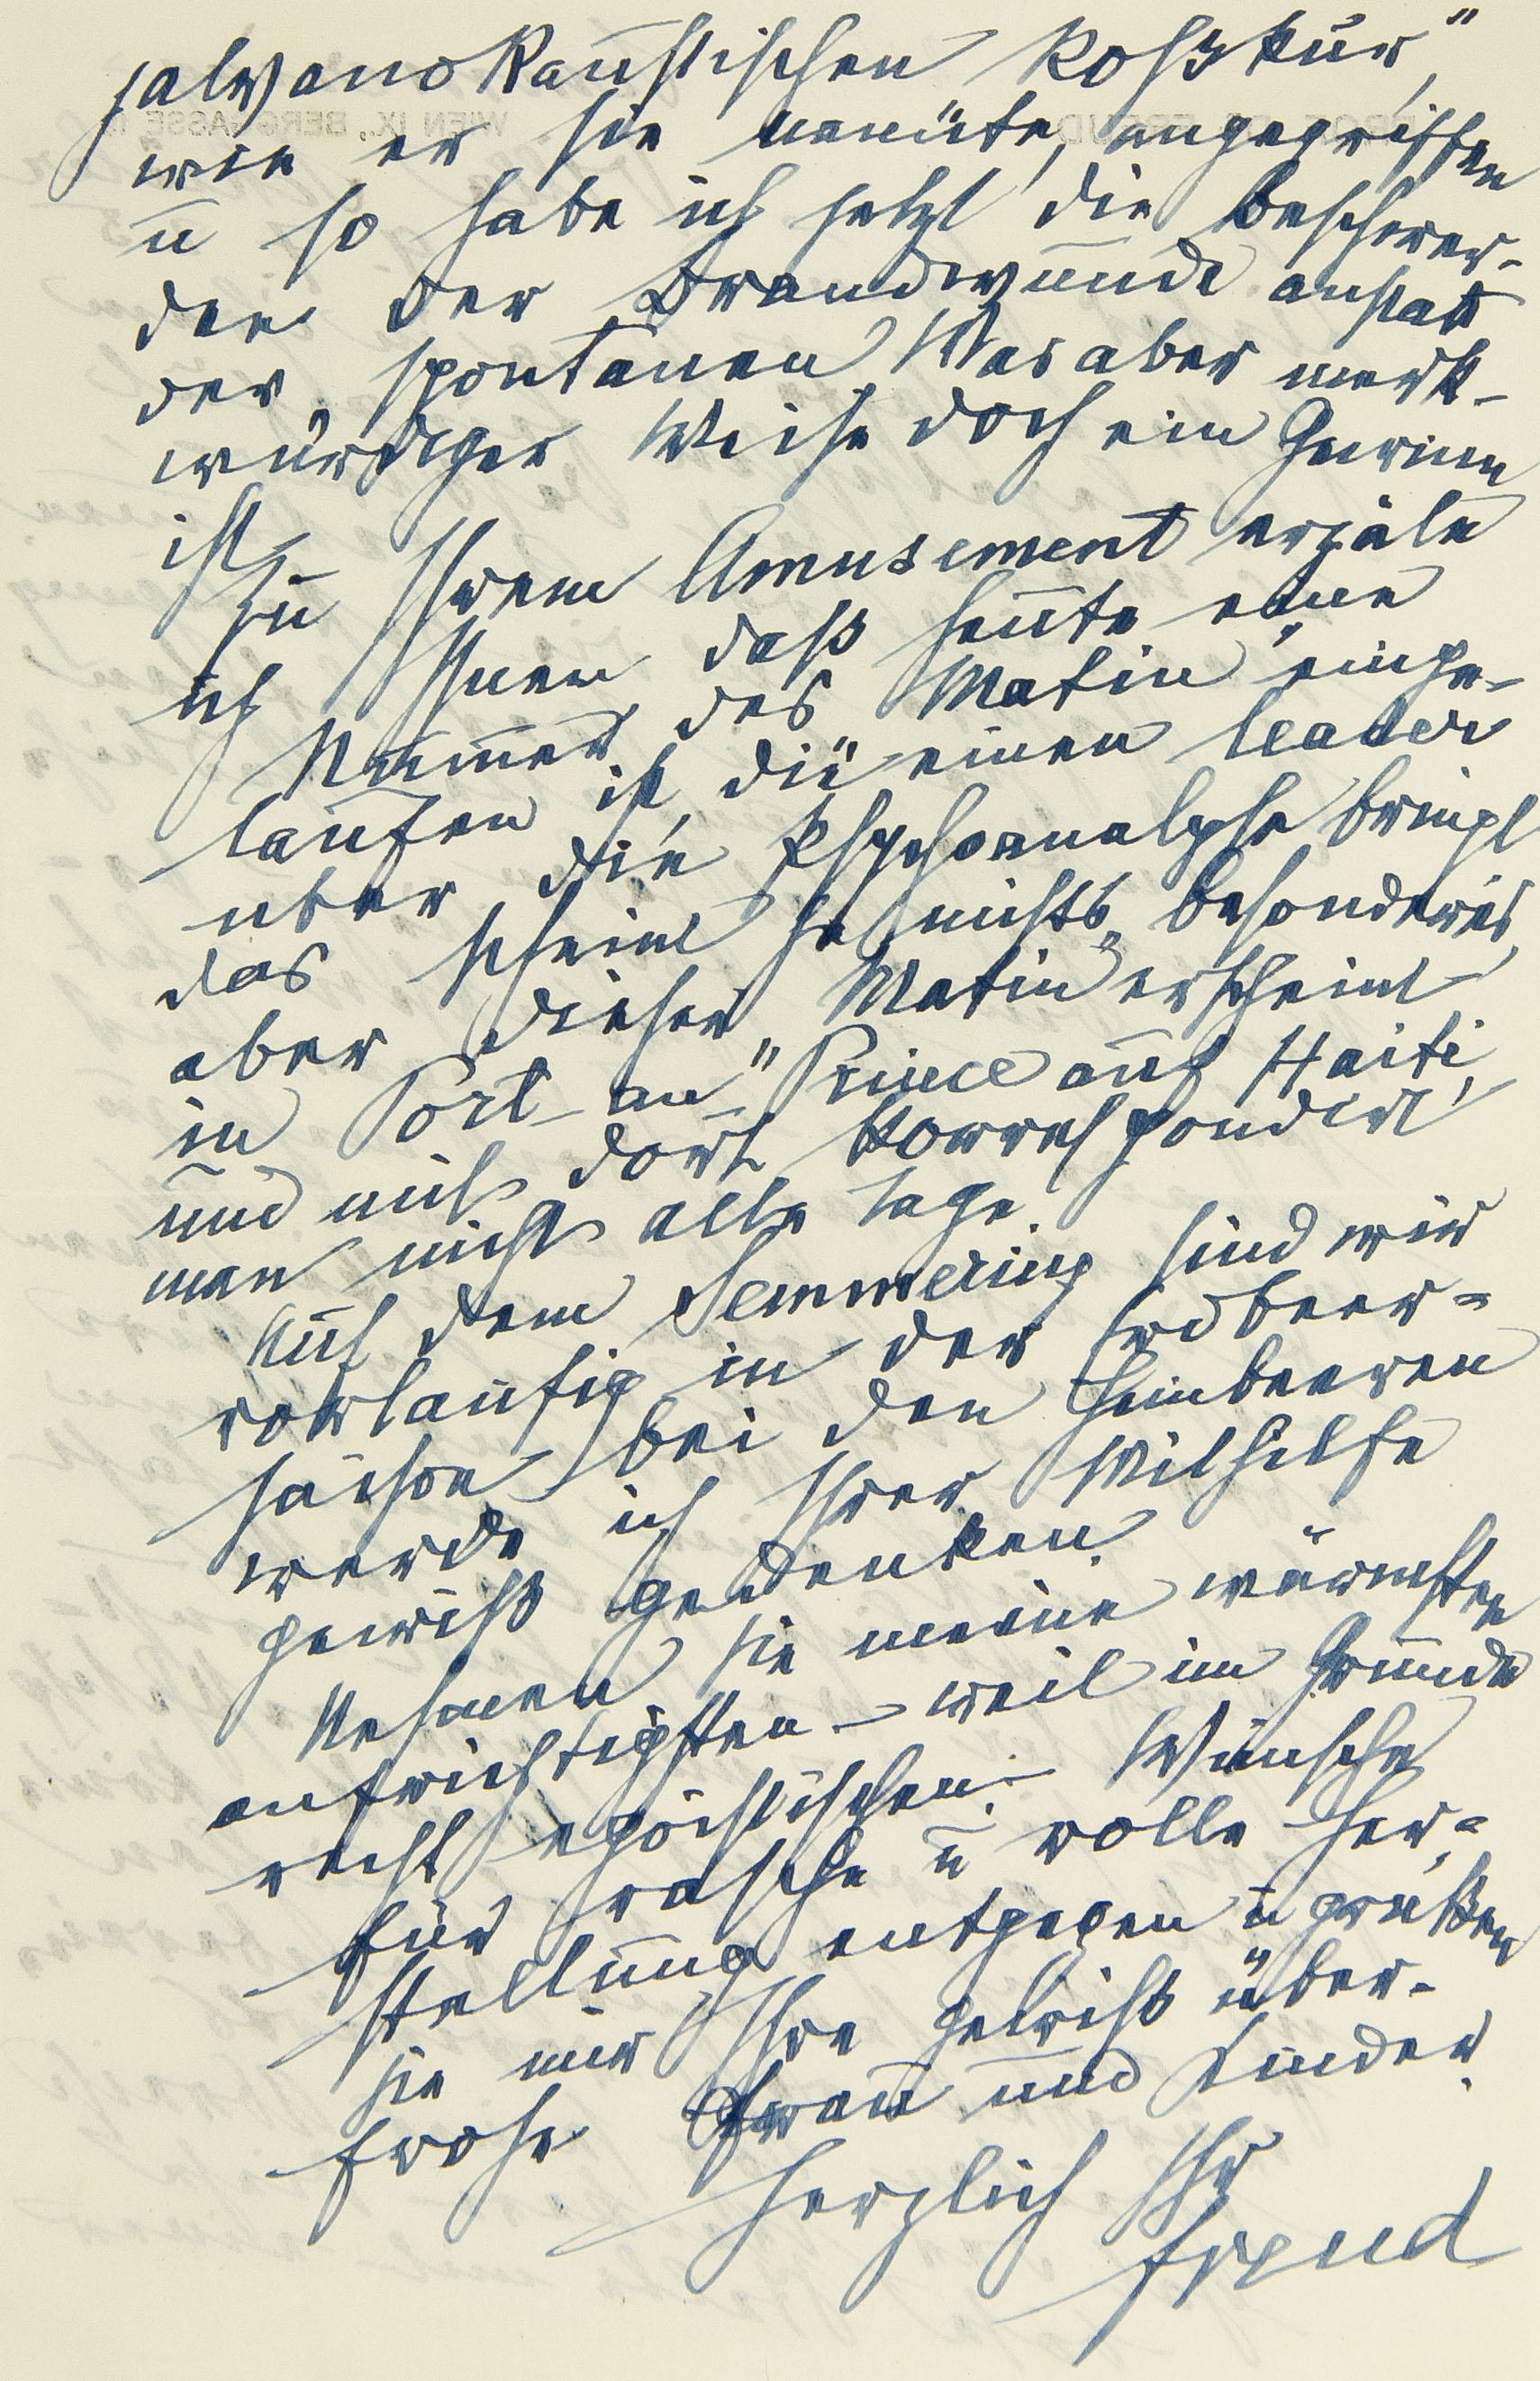 galvanokaustischen Roßkur",
wie er sie nannte, angegriffen
u so habe ich jetzt die Beschwer-
den der Brandwunde anstatt
der spontanen Was aber merk-
würdiger Weise doch ein Gewinn
ist.
Zu Ihrem Amusement erzäle
ich Ihnen daß heute eine
Nummer des Matin einge-
laufen ist, die einen leader
über die Psychoanalyse bringt
das scheint ja nichts besonderes,
aber dieser Matin erscheint
in Port-au-Prince auf Haiti,
und mit dort korrespondirt
man nicht alle Tage.
Auf dem Semmering sind wir
vorläufig in der Erdbeer-
saison bei den Himbeeren
werde ich Ihrer Mithilfe
gewiß gedenken.
Nehmen Sie meine wärmsten
aufrichtigsten – weil im Grunde
recht egoistischen – Wünsche
für rasche u volle Her-
stellung entgegen u grüßen
Sie mir Ihre gewiß über-
frohe Frau und Kinder.
Herzlich Ihr
Freud
WIEN IX., BERGGASSE 19